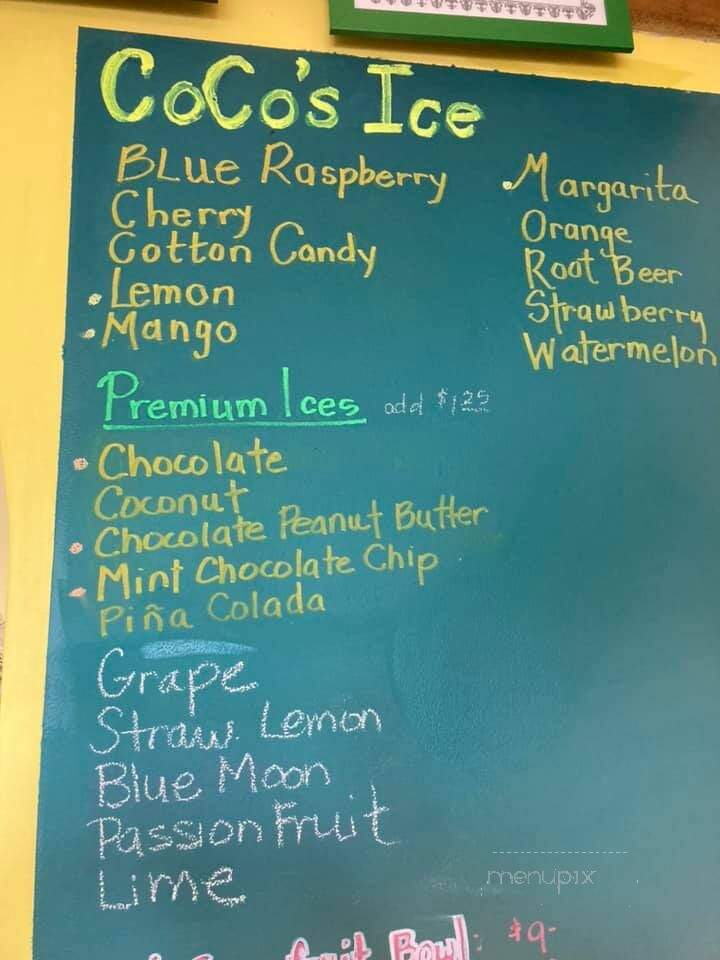 CoCo's Ice
BLue Raspberry
Cherry
Cotton Candy
Lemon
Mango
Margarita
Orange
Root Beer
Strawberry
Watermelon
Premium Ices add $1.25
Chocolate
Coconut
Chocolate Peanut Butter
Mint Chocolate Chip
Piña Colada
Grape
Straw. Lemon
Blue Moon
Passion Fruit
Lime
menupix
fruit Bowl: $9-